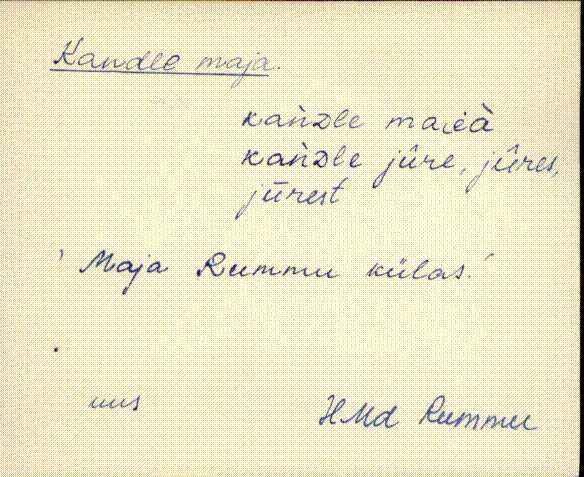 Kandle maja.
kańdle maièà
kańdle jûre, jûres,
jūrest
' Maja Rummu külas.'
uus
HMd Rummu